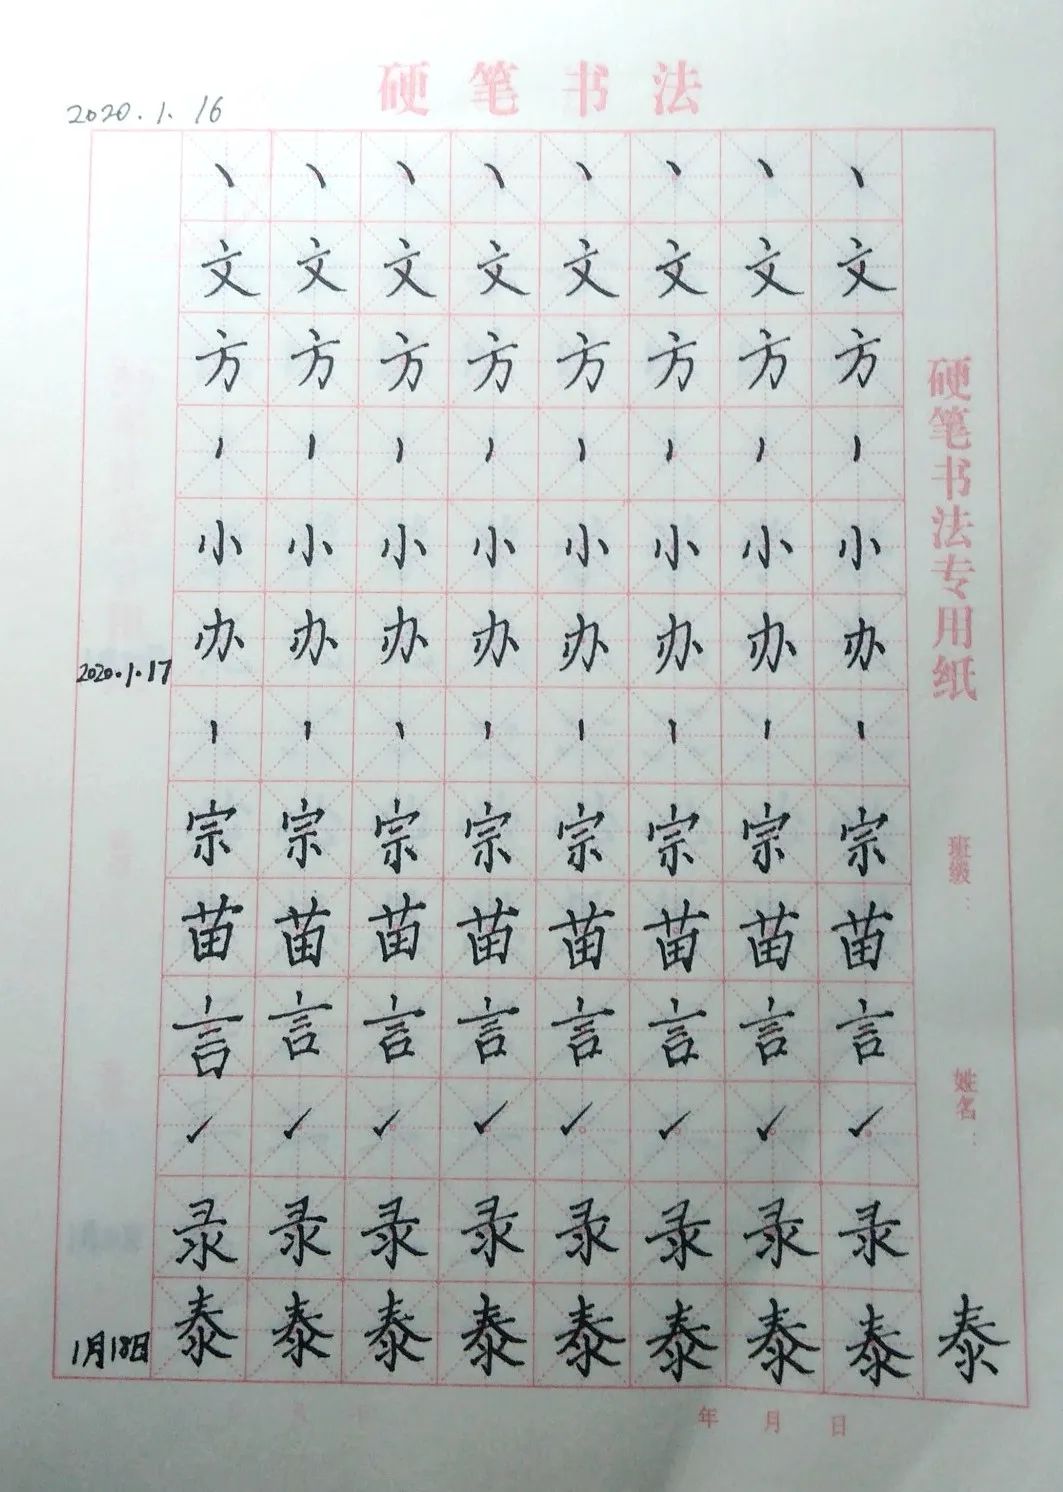 硬笔书法
2020.1.16
丶丶丶丶丶丶丶丶
文文文文文文文文
方方方方方方方方
丶丶丶丶丶丶丶丶
小小小小小小小小
办办办办办办办办
2020.1.17
丶丶丶丶丶丶丶丶
宗宗宗宗宗宗宗宗
苗苗苗苗苗苗苗苗
言言言言言言言言
录录录录录录录录
泰泰泰泰泰泰泰泰泰
1月18日
硬笔书法专用纸
班级：
姓名：
年 月 日